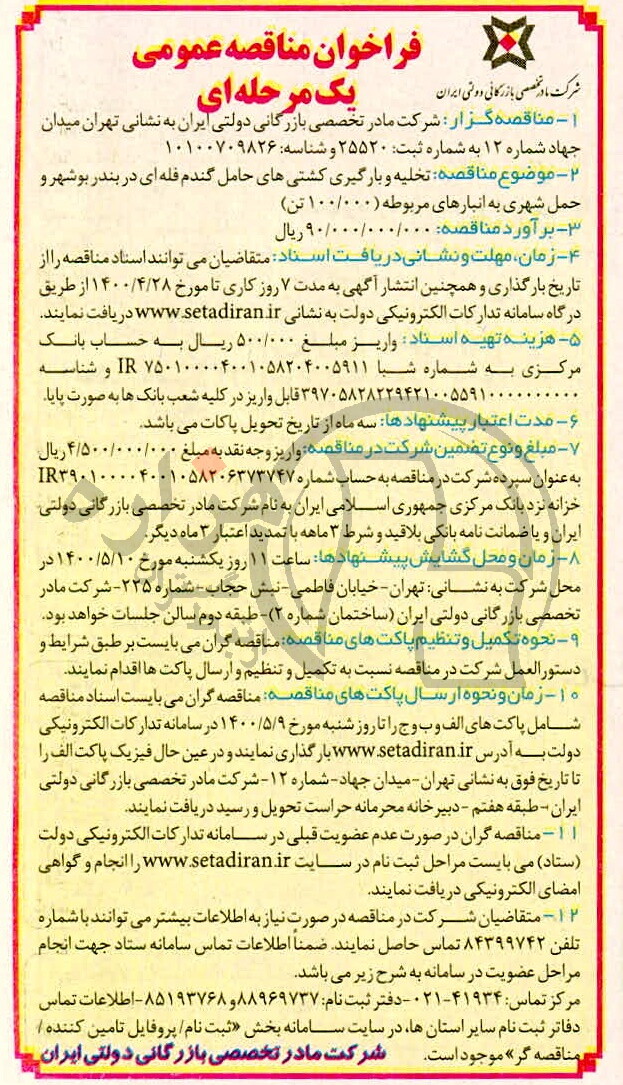 فراخوان مناقصه عمومی
یک مرحله‌ای
شرکت مادر تخصصی بازرگانی دولتی ایران
۱- مناقصه گزار: شرکت مادر تخصصی بازرگانی دولتی ایران به نشانی تهران میدان
جهاد شماره ۱۲ به شماره ثبت: ۲۵۵۲۰ و شناسه: ۱۰۱۰۰۷۰۹۸۲۶
۲- موضوع مناقصه: تخلیه و بارگیری کشتی های حامل گندم فله ای در بندر بوشهر و
حمل شهری به انبارهای مربوطه (۱۰۰/۰۰۰ تن)
۳- برآورد مناقصه: ۹۰/۰۰۰/۰۰۰/۰۰۰ ریال
۴- زمان، مهلت و نشانی دریافت اسناد: متقاضیان می توانند اسناد مناقصه را از
تاریخ بارگذاری و همچنین انتشار آگهی به مدت ۷ روز کاری تا مورخ ۱۴۰۰/۴/۲۸ از طریق
درگاه سامانه تدارکات الکترونیکی دولت به نشانی www.setadiran.ir دریافت نمایند.
۵- هزینه تهیه اسناد: واریز مبلغ ۵۰۰/۰۰۰ ریال به حساب بانک
مرکزی به شماره شبا IR ۷۵۰۱۰۰۰۰۴۰۰۱۰۵۸۲۰۴۰۰۵۹۱۱ و شناسه
۳۹۷۰۵۸۲۸۲۲۹۴۲۱۰۰۵۵۹۱۰۰۰۰۰۰۰۰۰۰ قابل واریز در کلیه شعب بانک ها به صورت پایا.
۶- مدت اعتبار پیشنهادها: سه ماه از تاریخ تحویل پاکات می باشد.
۷- مبلغ و نوع تضمین شرکت در مناقصه: واریز وجه نقد به مبلغ ۴/۵۰۰/۰۰۰/۰۰۰ ریال
به عنوان سپرده شرکت در مناقصه به حساب شماره IR۳۹۰۱۰۰۰۰۴۰۰۱۰۵۸۲۰۶۳۷۳۷۴۷
خزانه نزد بانک مرکزی جمهوری اسلامی ایران به نام شرکت مادر تخصصی بازرگانی دولتی
ایران و یا ضمانت نامه بانکی بلاقید و شرط ۳ ماهه با تمدید اعتبار ۳ ماه دیگر.
۸- زمان و محل گشایش پیشنهادها: ساعت ۱۱ روز یکشنبه مورخ ۱۴۰۰/۵/۱۰ در
محل شرکت به نشانی: تهران - خیابان فاطمی - نبش حجاب - شماره ۲۲۵ - شرکت مادر
تخصصی بازرگانی دولتی ایران (ساختمان شماره ۲) - طبقه دوم سالن جلسات خواهد بود.
۹- نحوه تکمیل و تنظیم پاکت های مناقصه: مناقصه گران می بایست بر طبق شرایط و
دستورالعمل شرکت در مناقصه نسبت به تکمیل و تنظیم و ارسال پاکت ها اقدام نمایند.
۱۰- زمان و نحوه ارسال پاکت های مناقصه: مناقصه گران می بایست اسناد مناقصه
شامل پاکت های الف و ب و ج را تا روز شنبه مورخ ۱۴۰۰/۵/۹ در سامانه تدارکات الکترونیکی
دولت به آدرس www.setadiran.ir بارگذاری نمایند و در عین حال فیزیک پاکت الف را
تا تاریخ فوق به نشانی تهران - میدان جهاد - شماره ۱۲ - شرکت مادر تخصصی بازرگانی دولتی
ایران - طبقه هفتم - دبیرخانه محرمانه حراست تحویل و رسید دریافت نمایند.
۱۱- مناقصه گران در صورت عدم عضویت قبلی در سامانه تدارکات الکترونیکی دولت
(ستاد) می بایست مراحل ثبت نام در سایت www.setadiran.ir را انجام و گواهی
امضای الکترونیکی دریافت نمایند.
۱۲- متقاضیان شرکت در مناقصه در صورت نیاز به اطلاعات بیشتر می توانند با شماره
تلفن ۸۴۳۹۹۷۴۲ تماس حاصل نمایند. ضمناً اطلاعات تماس سامانه ستاد جهت انجام
مراحل عضویت در سامانه به شرح زیر می باشد.
مرکز تماس: ۴۱۹۳۴-۰۲۱ - دفتر ثبت نام: ۸۸۹۶۹۷۳۷ و ۸۵۱۹۳۷۶۸ - اطلاعات تماس
دفاتر ثبت نام سایر استان ها، در سایت سامانه بخش «ثبت نام / پروفایل تامین کننده /
مناقصه گر» موجود است.
شرکت مادر تخصصی بازرگانی دولتی ایران